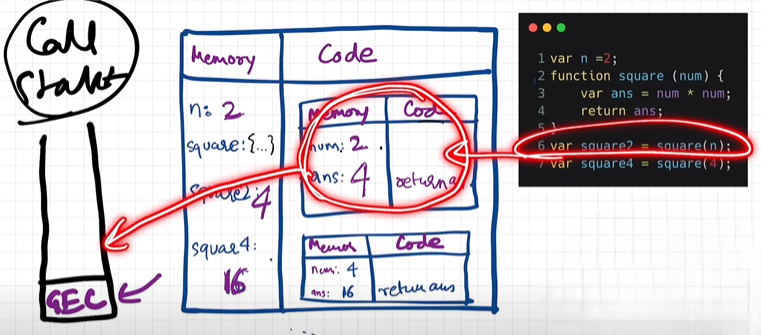 Call
Stack
GEC
Memory
Code
n: 2
square: {...}
square2:
4
squar4:
16
Memory
Cod
num: 2
ans: 4
return a
Memor
Code
num: 4
ans: 16
return ans
1 var n =2;
2 function square (num) {
3 var ans = num * num;
4 return ans;
5 }
6 var square2 = square(n);
7 var square4 = square(4);